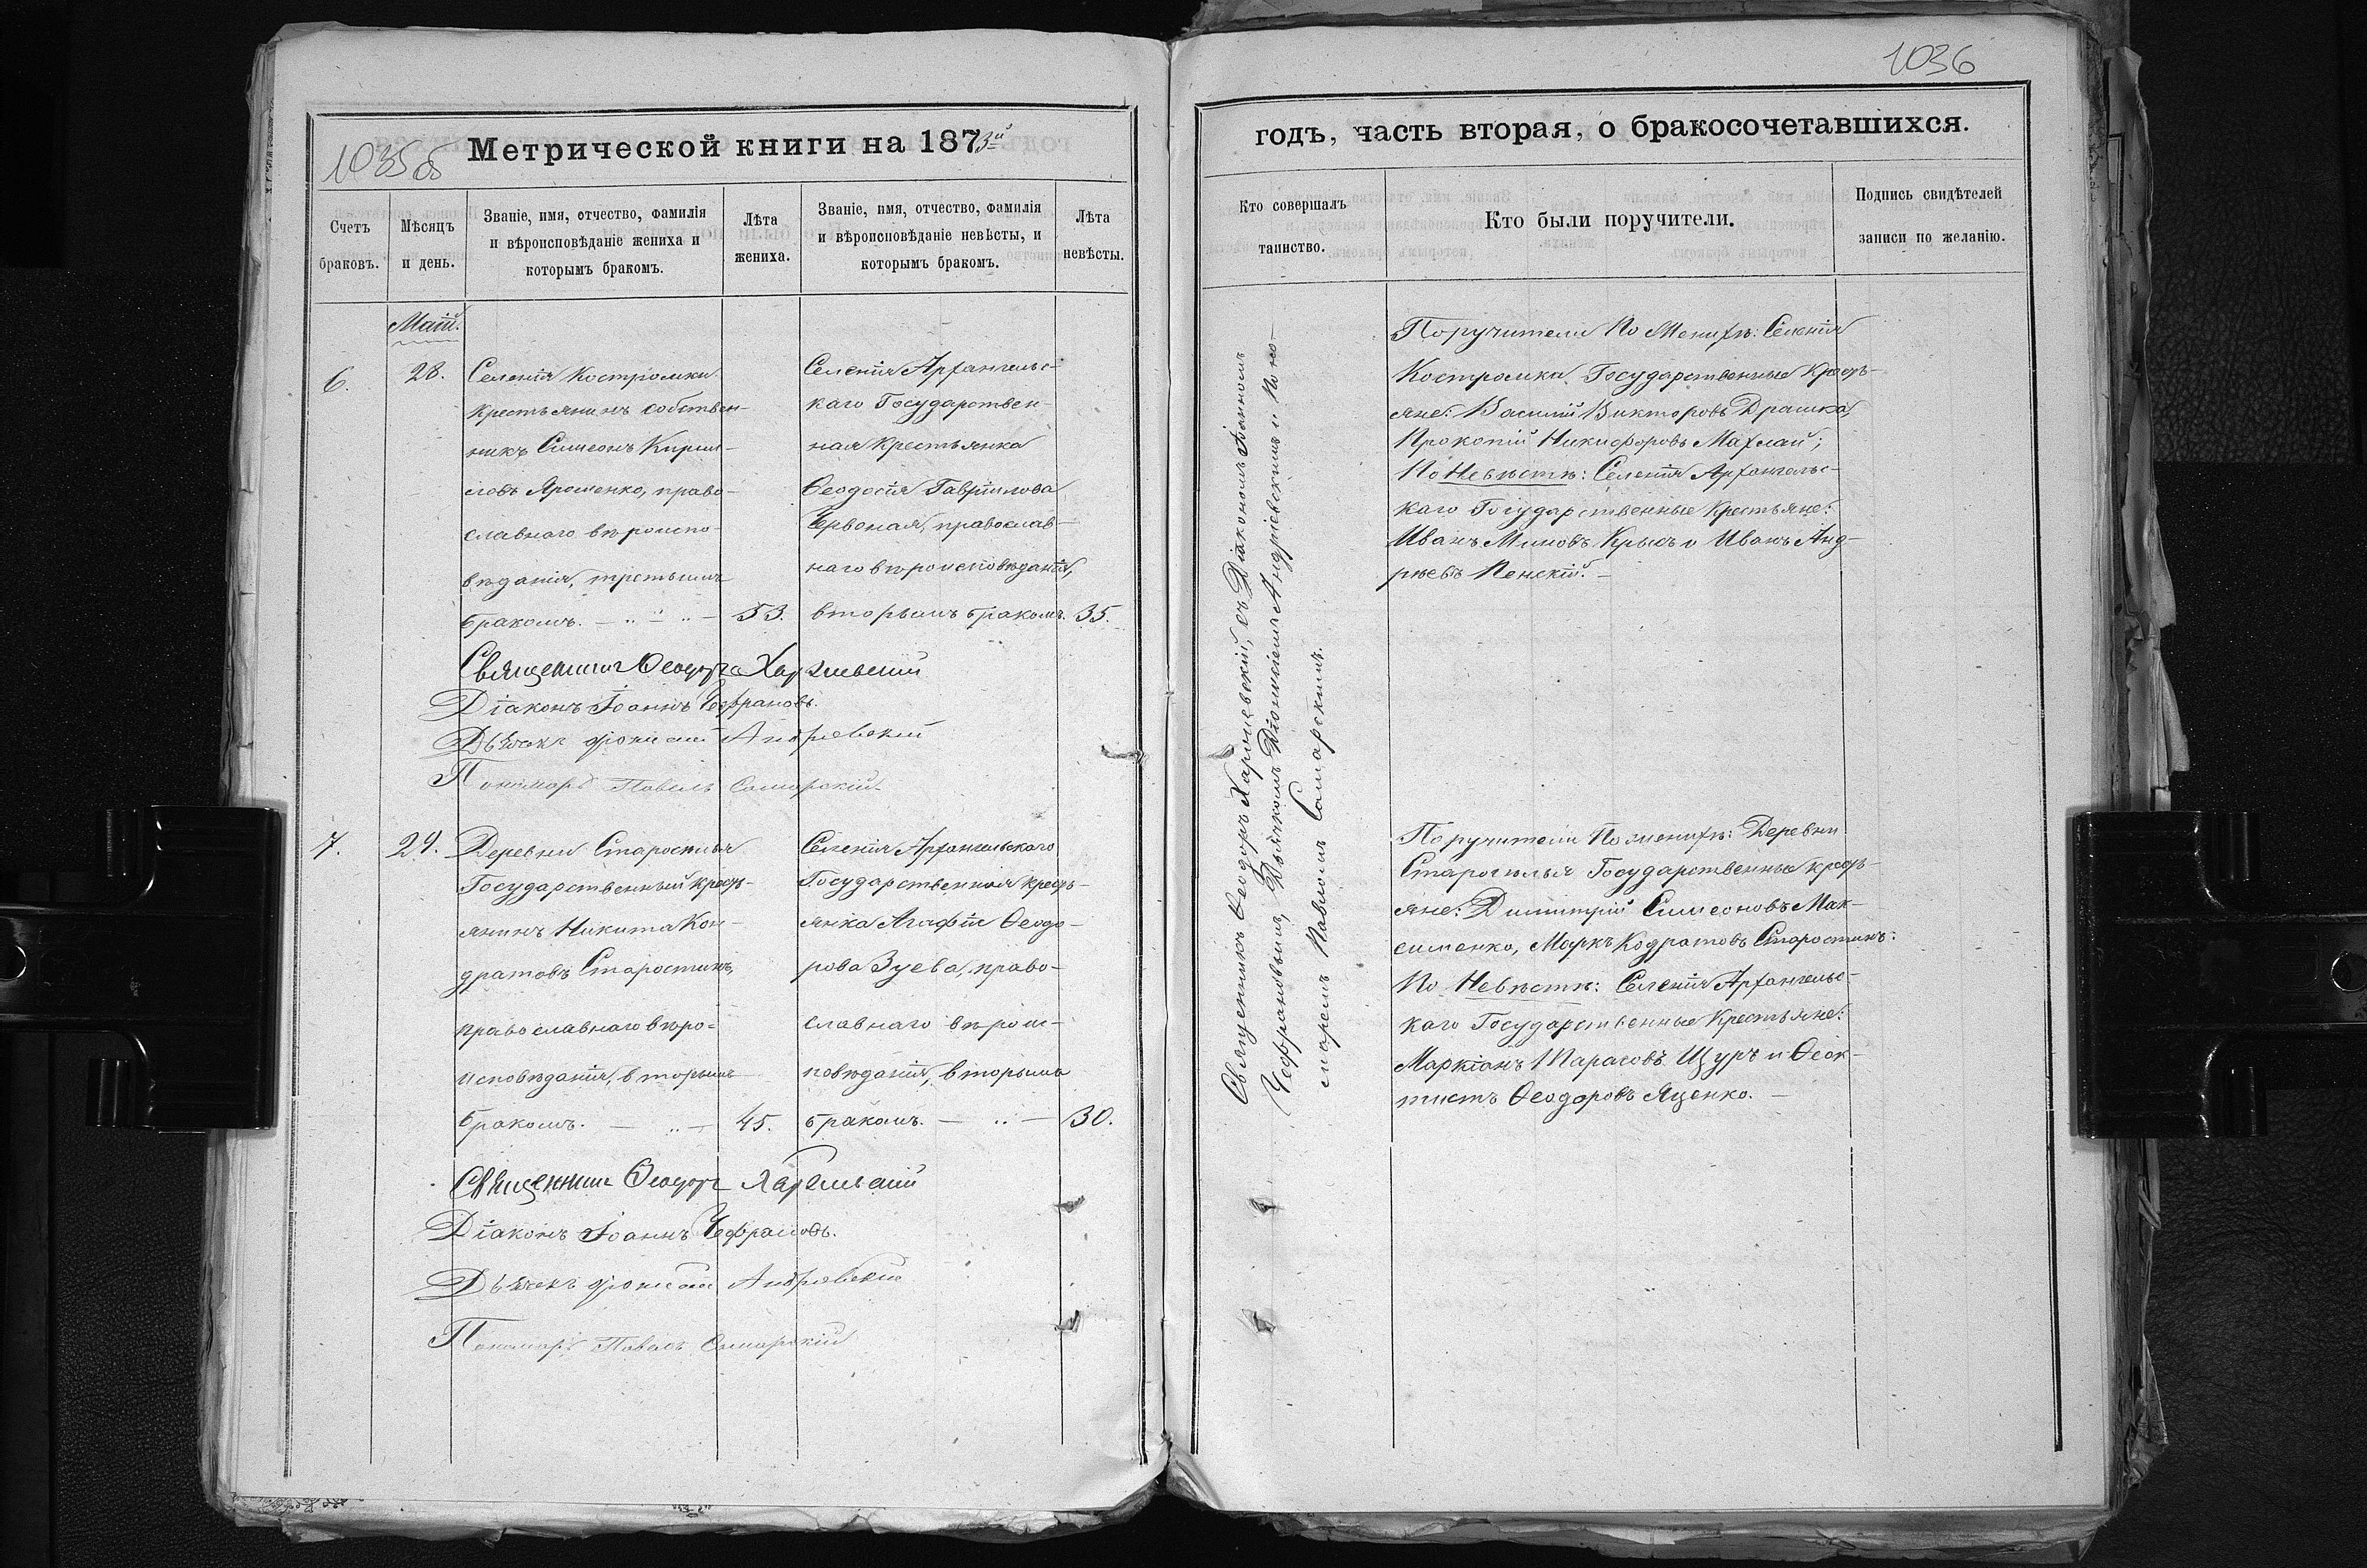 1035об
Метрической книги на 1873й
Счетъ браковъ.
Мѣсяцъ и день.
Званіе, имя, отчество, фамилія
и вѣроисповѣданіе жениха и
которымъ бракомъ.
Лѣта жениха.
Званіе, имя, отчество, фамилія
и вѣроисповѣданіе невѣсты, и
которымъ бракомъ.
Лѣта невѣсты.
Май.
6.
28.
Селенія Костромки
крестьянинъ собствен-
никъ Симеонъ Кирил-
ловъ Яроменко, право-
славнаго вѣроиспо-
вѣданія, третьимъ
бракомъ.
53.
Селенія Архангельс-
каго Государствен-
ная крестьянка
Ѳеодосія Гавріилова
Червоная, православ-
наго вѣроисповѣданія,
вторымъ бракомъ.
35.
Священникъ Ѳеодоръ
Діаконъ Іоаннъ Чефрановъ.
Дьячекъ Діонисій Андріевскій
Пономарь Павелъ Самарскій
7.
29.
Деревни
Государственный крест-
янинъ Никита Кон-
дратовъ Старостинъ,
православнаго вѣро-
исповѣданія, вторымъ
бракомъ.
45.
Селенія Архангельскаго
Государственная крест-
янка Агафія Ѳеодо-
рова Зуева, право-
славнаго вѣроис-
повѣданія, вторымъ
бракомъ.
30.
Священникъ Ѳеодоръ
Діаконъ Іоаннъ Чефрановъ.
Дьячекъ Діонисій Андріевскій
Пономарь Павелъ Самарскій
1036
годъ, часть вторая, о бракосочетавшихся.
Кто совершалъ
таинство.
Кто были поручители.
Подпись свидѣтелей
записи по желанію.
Священникъ Ѳеодоръ съ Діакономъ Іоанномъ
Чефрановымъ, Дьячкомъ Діонисіемъ Андріевскимъ и Поно-
маремъ Павломъ Самарскимъ.
Поручители По Женихѣ: Селенія
Костромки Государственные крест-
яне: Василій Викторовъ Драшка,
Прокопій Никифоровъ Махлай;
По Невѣстѣ: Селенія Архангельс-
каго Государственные крестьяне:
Иванъ Миновъ Крысь и Иванъ Анд-
рѣевъ Пенскій.
Поручители По женихѣ: Деревни
Государственные крест-
яне: Димитрій Симеоновъ Мак-
сименко, Маркъ Кодратовъ Старостинъ:
По Невѣстѣ: Селенія Архангельс-
каго Государственные крестьяне:
Маркіанъ Щуръ и Ѳеок-
тистъ Ѳеодоровъ Яценко.